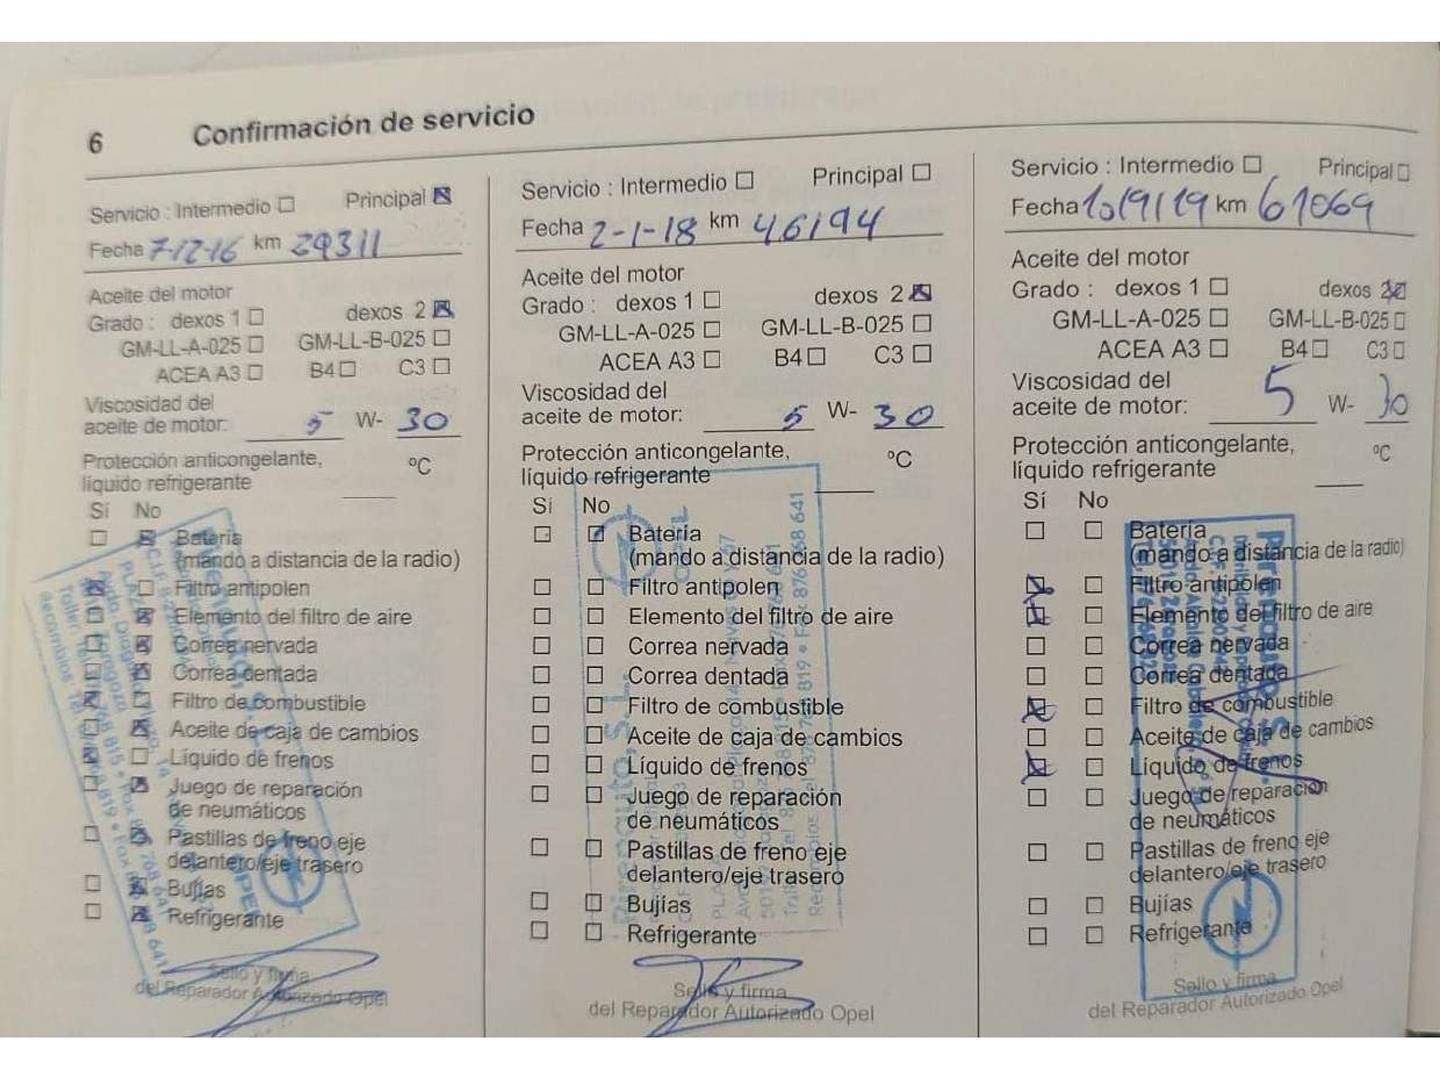 6 Confirmación de servicio
Servicio : Intermedio ☐ Principal ☒
Fecha 7-12-16 km 29311
Aceite del motor
Grado : dexos 1 ☐ dexos 2 ☒
GM-LL-A-025 ☐ GM-LL-B-025 ☐
ACEA A3 ☐ B4 ☐ C3 ☐
Viscosidad del
aceite de motor: 5 W- 30
Protección anticongelante, ºC
líquido refrigerante
Sí No
☐ ☒ Batería
(mando a distancia de la radio)
☒ ☐ Filtro antipolen
☐ ☒ Elemento del filtro de aire
☐ ☒ Correa nervada
☐ ☒ Correa dentada
☒ ☐ Filtro de combustible
☐ ☒ Aceite de caja de cambios
☒ ☐ Líquido de frenos
☐ ☒ Juego de reparación
de neumáticos
☐ ☒ Pastillas de freno eje
delantero/eje trasero
☐ ☒ Bujías
☐ ☒ Refrigerante
OPEL
Sello y firma
del Reparador Autorizado Opel
Servicio : Intermedio ☐ Principal ☐
Fecha 2-1-18 km 46194
Aceite del motor
Grado : dexos 1 ☐ dexos 2 ☒
GM-LL-A-025 ☐ GM-LL-B-025 ☐
ACEA A3 ☐ B4 ☐ C3 ☐
Viscosidad del
aceite de motor: 5 W- 30
Protección anticongelante, ºC
líquido refrigerante
Sí No
☐ ☒ Batería
(mando a distancia de la radio)
☐ ☐ Filtro antipolen
☐ ☐ Elemento del filtro de aire
☐ ☐ Correa nervada
☐ ☐ Correa dentada
☐ ☐ Filtro de combustible
☐ ☐ Aceite de caja de cambios
☐ ☐ Líquido de frenos
☐ ☐ Juego de reparación
de neumáticos
☐ ☐ Pastillas de freno eje
delantero/eje trasero
☐ ☐ Bujías
☐ ☐ Refrigerante
Sello y firma
del Reparador Autorizado Opel
Servicio : Intermedio ☐ Principal ☐
Fecha 10/9/19 km 61069
Aceite del motor
Grado : dexos 1 ☐ dexos 2 ☒
GM-LL-A-025 ☐ GM-LL-B-025 ☐
ACEA A3 ☐ B4 ☐ C3 ☐
Viscosidad del
aceite de motor: 5 W- 30
Protección anticongelante, ºC
líquido refrigerante
Sí No
☐ ☐ Batería
(mando a distancia de la radio)
☒ ☐ Filtro antipolen
☒ ☐ Elemento del filtro de aire
☐ ☐ Correa nervada
☐ ☐ Correa dentada
☒ ☐ Filtro de combustible
☐ ☐ Aceite de caja de cambios
☒ ☐ Líquido de frenos
☐ ☐ Juego de reparación
de neumáticos
☐ ☐ Pastillas de freno eje
delantero/eje trasero
☐ ☐ Bujías
☐ ☐ Refrigerante
Sello y firma
del Reparador Autorizado Opel